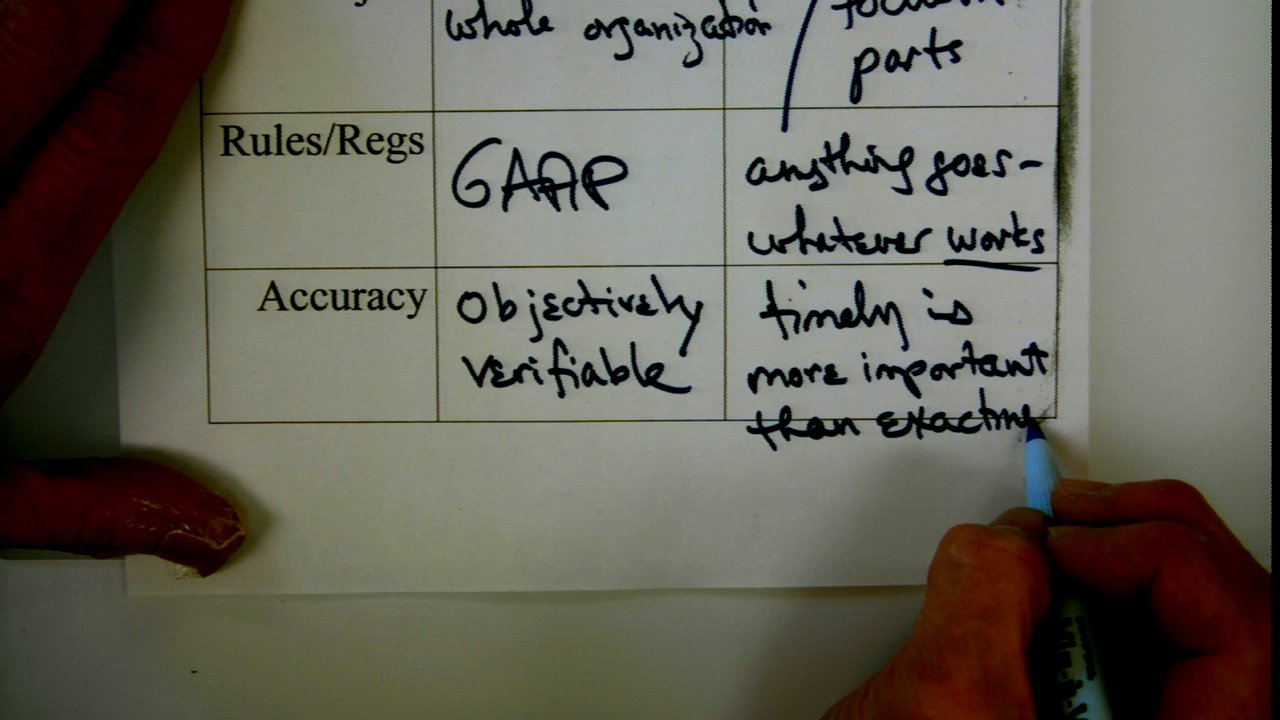 whole organization
parts
Rules/Regs
GAAP
anything goes-
whatever works
Accuracy
Objectively
verifiable
timely is
more important
than